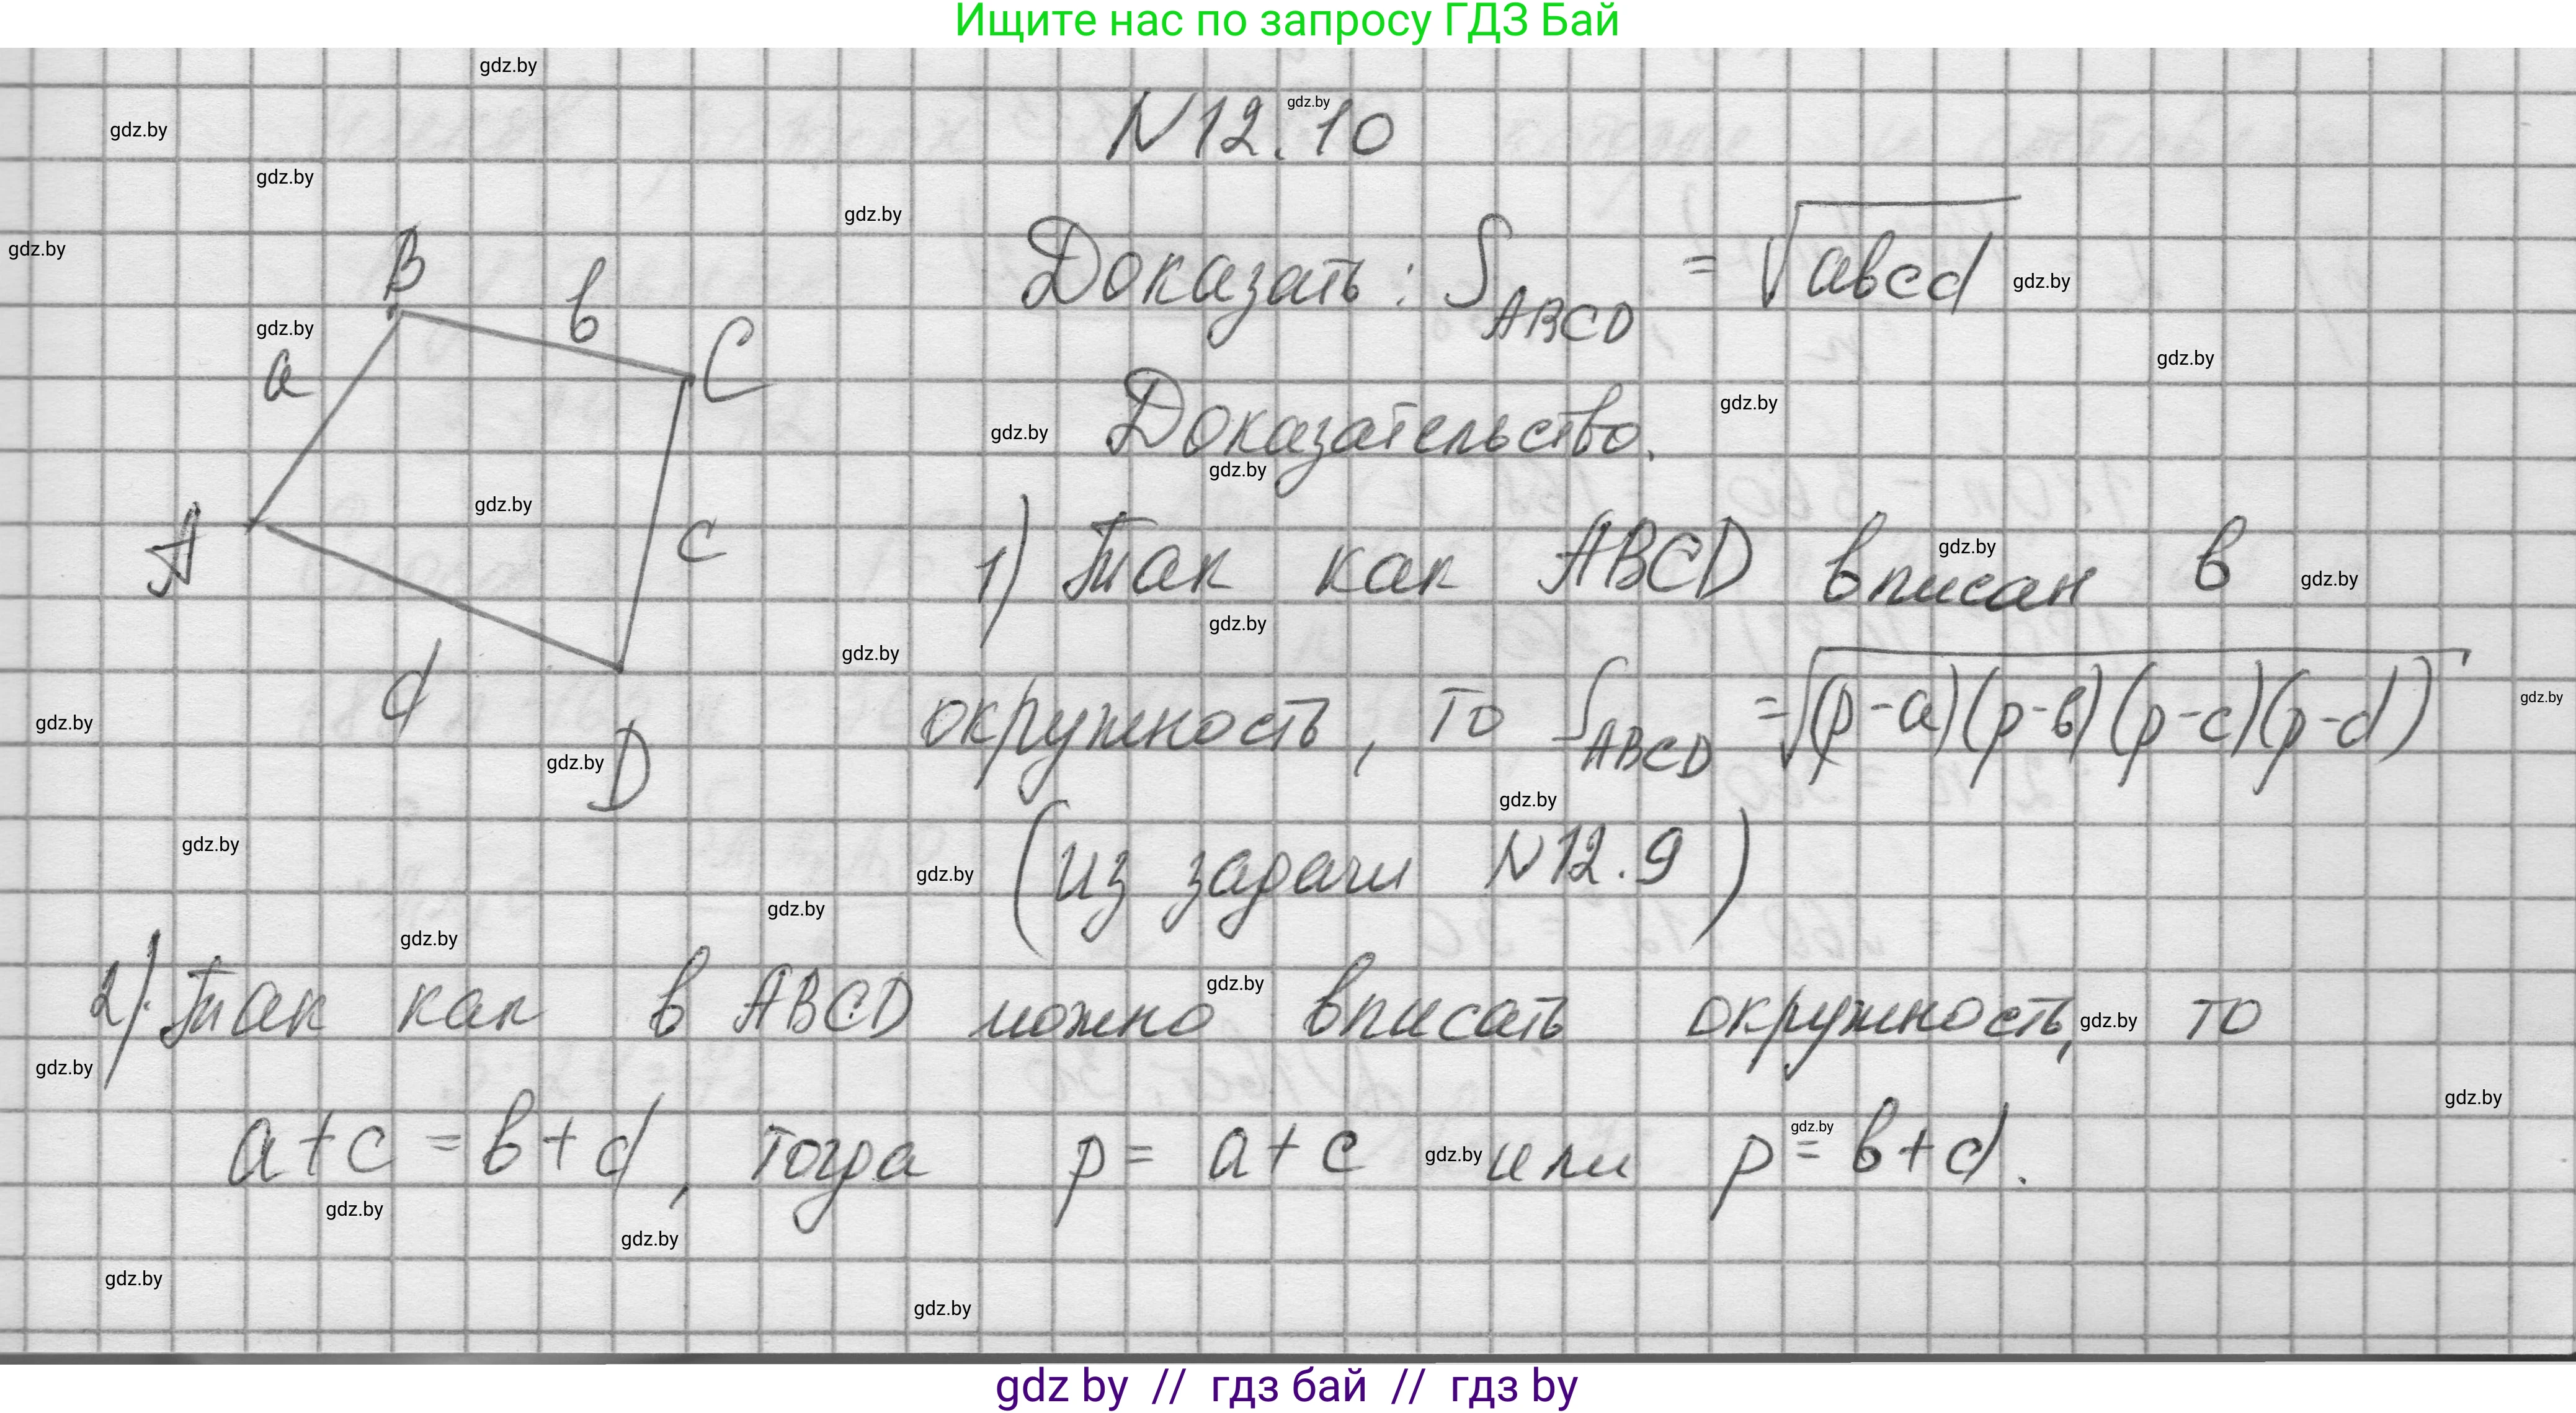 Ищите нас по запросу ГДЗ Бай
N12.10
B
b
a
C
A
c
d
D
Доказать: S_ABCD = √abcd
Доказательство.
1) Так как ABCD вписан в
окружность, то S_ABCD = √(p-a)(p-b)(p-c)(p-d)
(из задачи N12.9)
2) Так как в ABCD можно вписать окружность, то
a+c = b+d, тогда p = a+c или p = b+d.
gdz by // гдз бай // гдз by
gdz.by